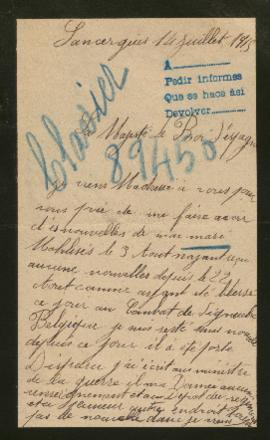 Sancergues 14 juillet 1915
A
Pedir informes
Que se hace así
Devolver
Classer
89450
a Majesté le Roi d'Espagne
Je viens Madame a vous pour
vous prié de me faire avoir
des nouvelles de mon mari
Mobilisés le 3 Aout nayant reçu
aucune nouvelles depuis le 22
Aout comme ayant été blessé
ce jour au Combat de
Belgique je suis resté sans nouvelle
depuis ce jour il a été porté
Disparu j'ai écrit au ministre
de la guerre il ma Donné aucun
renseignement et au Dépot du
et a endroit
pas de nouvelle donc je viens